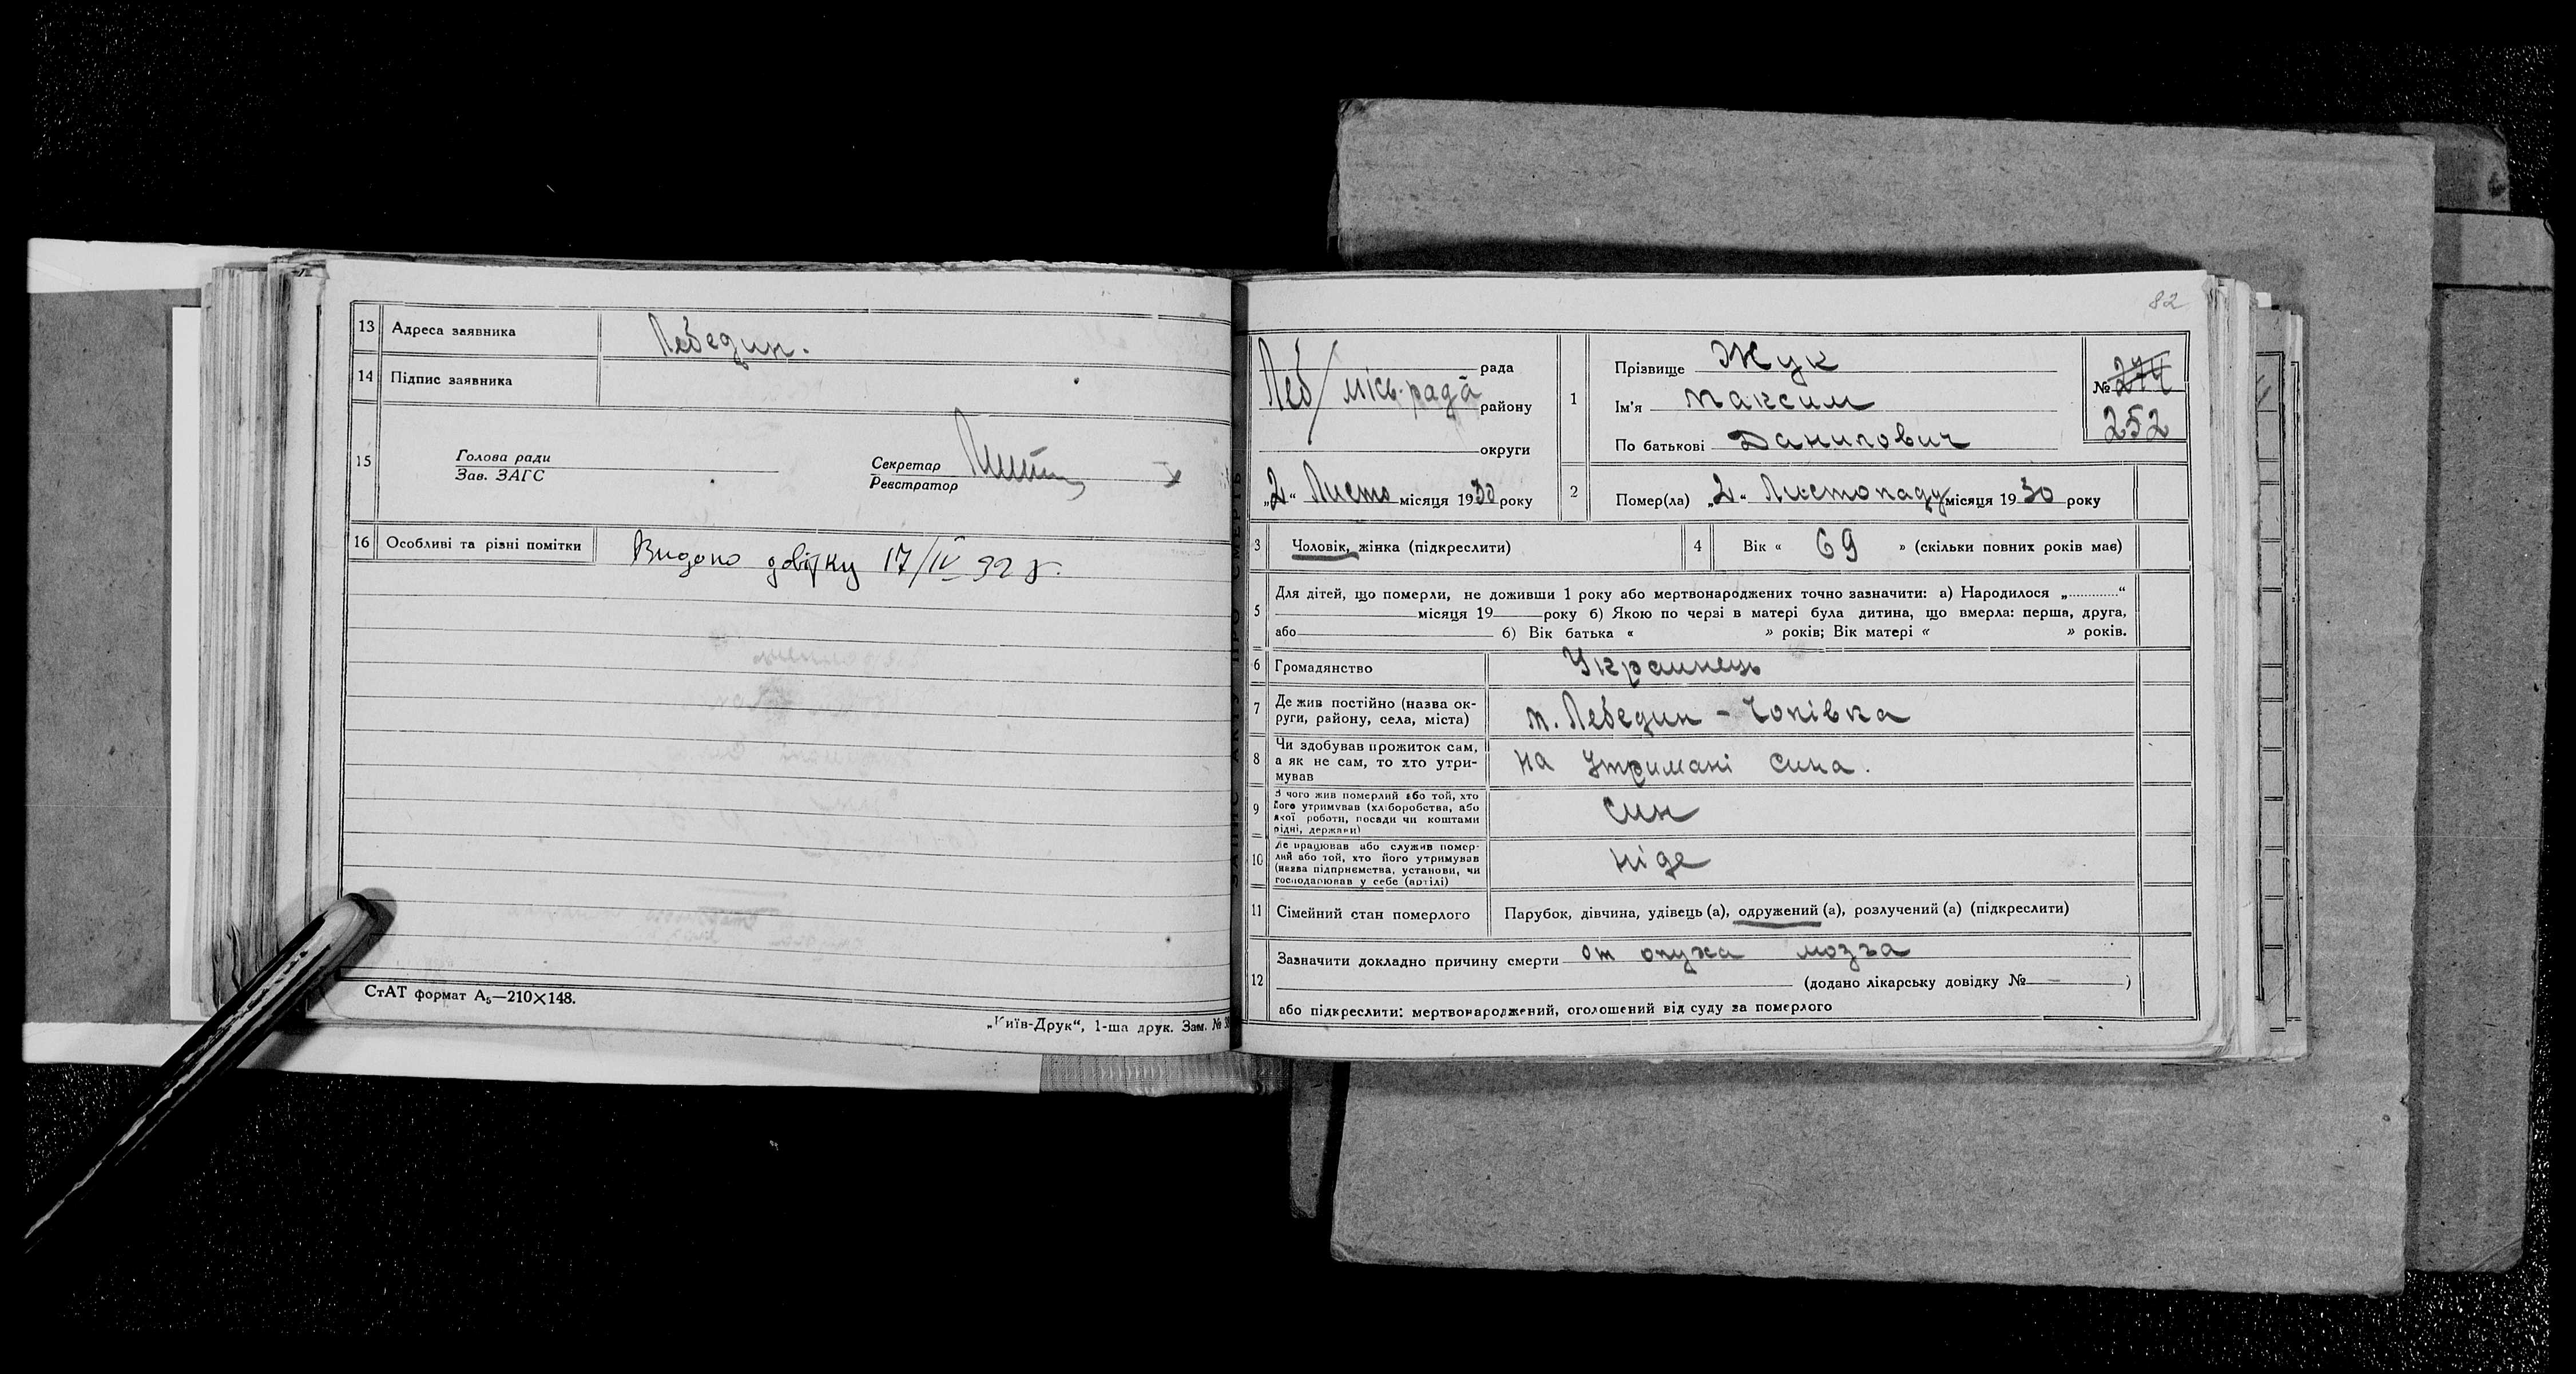 13 Адреса заявника Лебедин.
14 Підпис заявника
15 Голова ради
Зав. ЗАГС
Секретар
Реєстратор
16 Особливі та різні помітки Видано довідку 17/IV 32 г.
СтАТ формат А₅—210×148.
„Київ-Друк“, 1-ша друк. Зам. №
ЗАПИС АКТУ ПРО СМЕРТЬ
82
Леб/ міськ-рада
рада
району
округи
„2“ Листо місяця 1930 року
1 Прізвище Жук
Ім'я Максим
По батькові Данилович
№ 274
252
2 Помер(ла) „2“ Листопаду місяця 1930 року
3 Чоловік, жінка (підкреслити)
4 Вік « 69 » (скільки повних років має)
5 Для дітей, що померли, не доживши 1 року або мертвонароджених точно зазначити: а) Народилося „.............“
місяця 19 року б) Якою по черзі в матері була дитина, що вмерла: перша, друга,
або б) Вік батька « » років; Вік матері « » років.
6 Громадянство Українець
7 Де жив постійно (назва ок-
руги, району, села, міста) м. Лебедин -
8 Чи здобував прожиток сам,
а як не сам, то хто утри-
мував на утримані сина.
9 З чого жив померлий або той, хто
його утримував (хліборобства, або
якої роботи, посади чи коштами
рідні, держави) син
10 Де працював або служив помер-
лий або той, хто його утримував
(назва підприємства, установи, чи
господарював у себе (артілі) ніде
11 Сімейний стан померлого Парубок, дівчина, удівець (а), одружений (а), розлучений (а) (підкреслити)
12 Зазначити докладно причину смерти от опуха мозга
(додано лікарську довідку № — )
або підкреслити: мертвонароджений, оголошений від суду за померлого